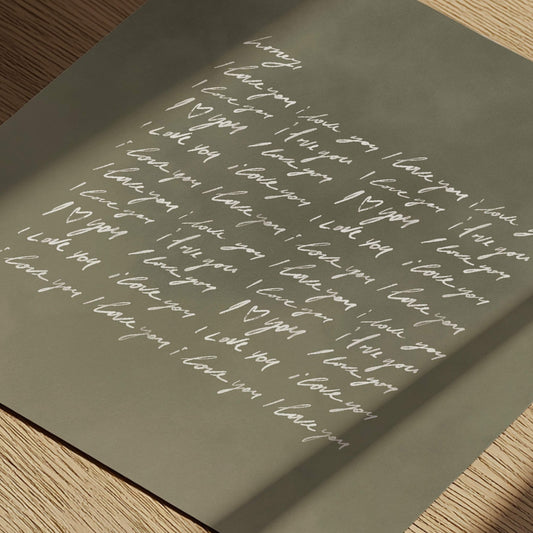 honey,
I love you i love you I love you i love you
I love you i love you I love you i love you
I ♡ you I love you I ♡ you I love you
I love you i love you I love you i love you
i love you I love you i love you I love you
I love you i love you I love you i love you
I love you i love you I love you i love you
I ♡ you I love you I ♡ you I love you
I love you i love you I love you i love you
i love you I love you i love you I love you